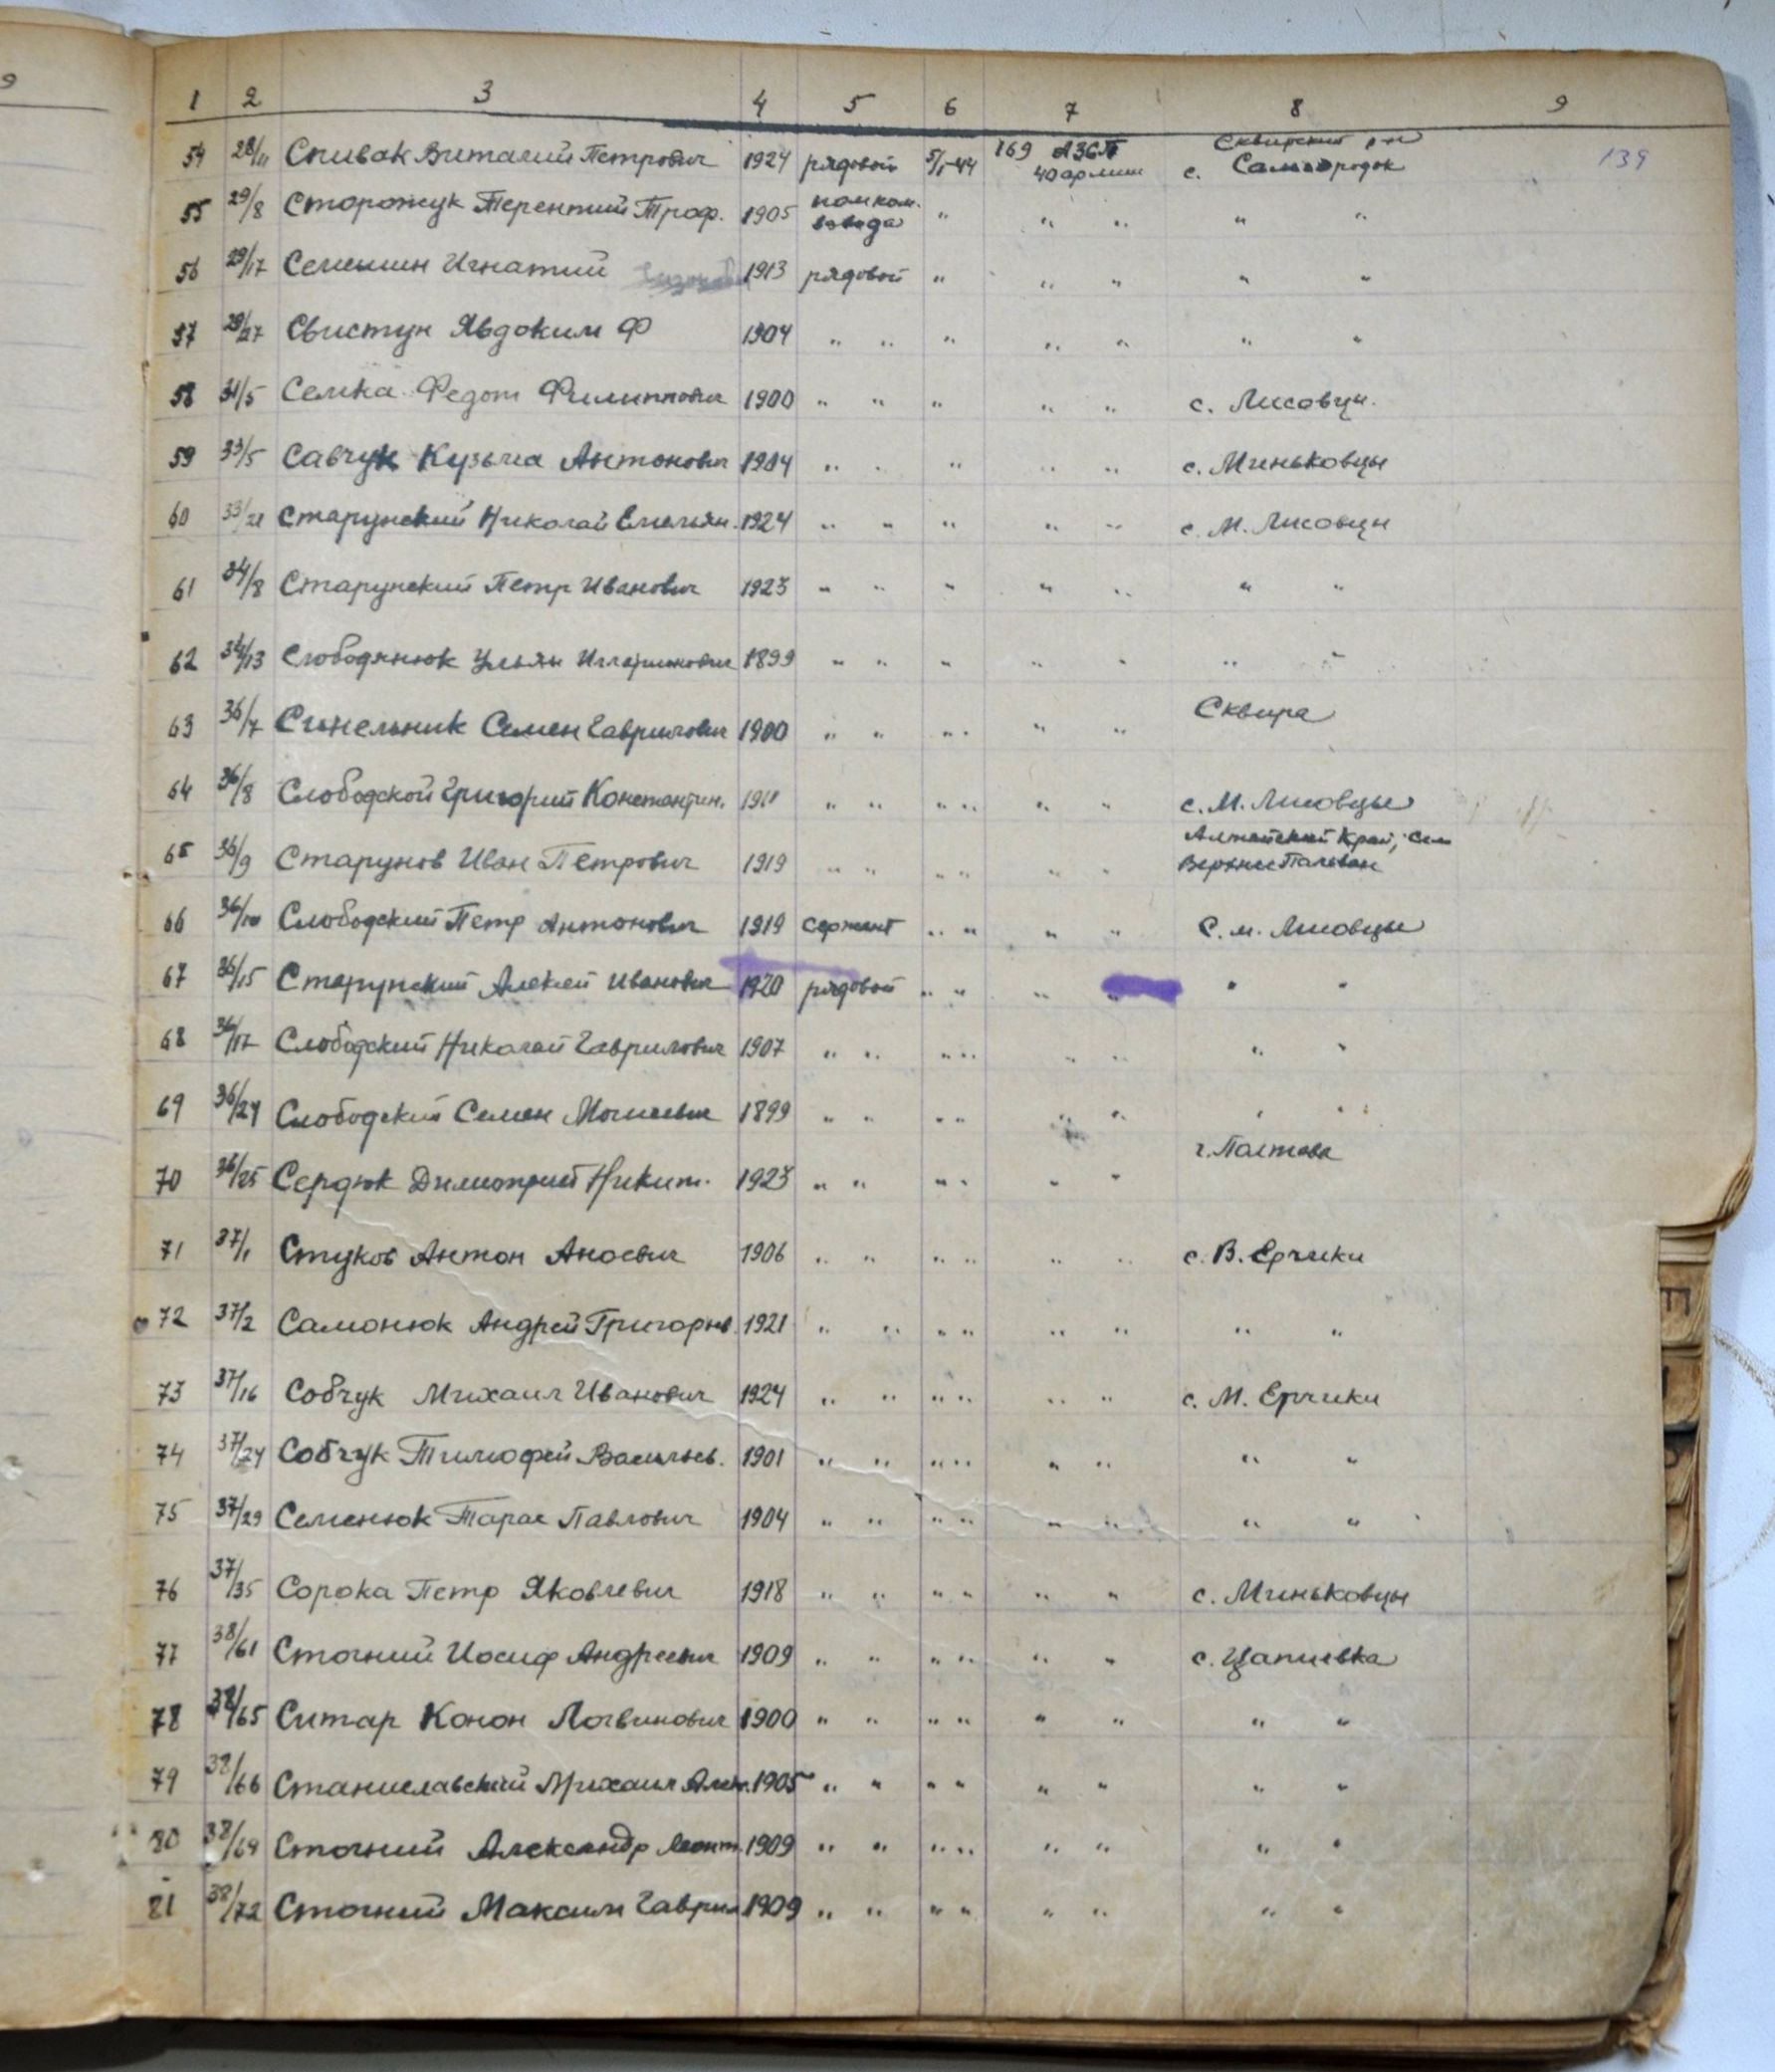 9
1 2 3 4 5 6 7 8 9
139
54 28/11 Спивак Виталий Петрович 1924 рядовой 5/I-44 169 АЗСП 40 армии Сквирский р-н с. Самгородок
55 29/8 Сторожук Терентий Троф. 1905 помком. взвода " " " " "
56 29/17 Семешин Игнатий 1913 рядовой " " " " "
57 29/27 Свистун Явдоким Ф 1904 " " " " " " "
58 31/5 Семка Федот Филиппович 1900 " " " " " с. Лисовцы.
59 33/5 Савчук Кузьма Антонович 1904 " " " " " с. Миньковцы
60 33/21 Старунский Николай Емельян. 1924 " " " " " с. М. Лисовцы
61 34/8 Старунский Петр Иванович 1923 " " " " " " "
62 34/13 Слободянюк Ульян Илларионович 1899 " " " " " " "
63 36/7 Синельник Семен Гаврилович 1900 " " " " " " Сквира
64 36/8 Слободской Григорий Константин. 1911 " " " " " " с. М. Лисовцы
65 36/9 Старунов Иван Петрович 1919 " " " " " " Алтайский Край, Верхнее
66 36/10 Слободский Петр Антонович 1919 сержант " " " " с. м. Лисовцы
67 36/15 Старунский Алексей Иванович 1920 рядовой " " " " " "
68 36/17 Слободский Николай Гаврилович 1907 " " " " " " " "
69 36/24 Слободский Семен Моисеевич 1899 " " " " " " " "
70 36/25 Сердюк Димитрий Никит. 1923 " " " " " " г. Полтава
71 37/1 Стуков Антон Аносвич 1906 " " " " " " с. В. Ерчики
72 37/2 Самонюк Андрей Григорьев. 1921 " " " " " " " "
73 37/16 Собчук Михаил Иванович 1924 " " " " " " с. М. Ерчики
74 37/24 Собчук Тимофей Васильев. 1901 " " " " " " " "
75 37/29 Семенюк Тарас Павлович 1904 " " " " " " " "
76 37/35 Сорока Петр Яковлевич 1918 " " " " " " с. Миньковцы
77 38/61 Стогний Иосиф Андреевич 1909 " " " " " " с. Цапиевка
78 38/65 Ситар Конон Логвинович 1900 " " " " " " " "
79 38/66 Станиславский Михаил 1905 " " " " " " " "
80 38/69 Стогний Александр Леонт. 1909 " " " " " " " "
81 38/72 Стогний Максим Гаврил 1909 " " " " " " " "